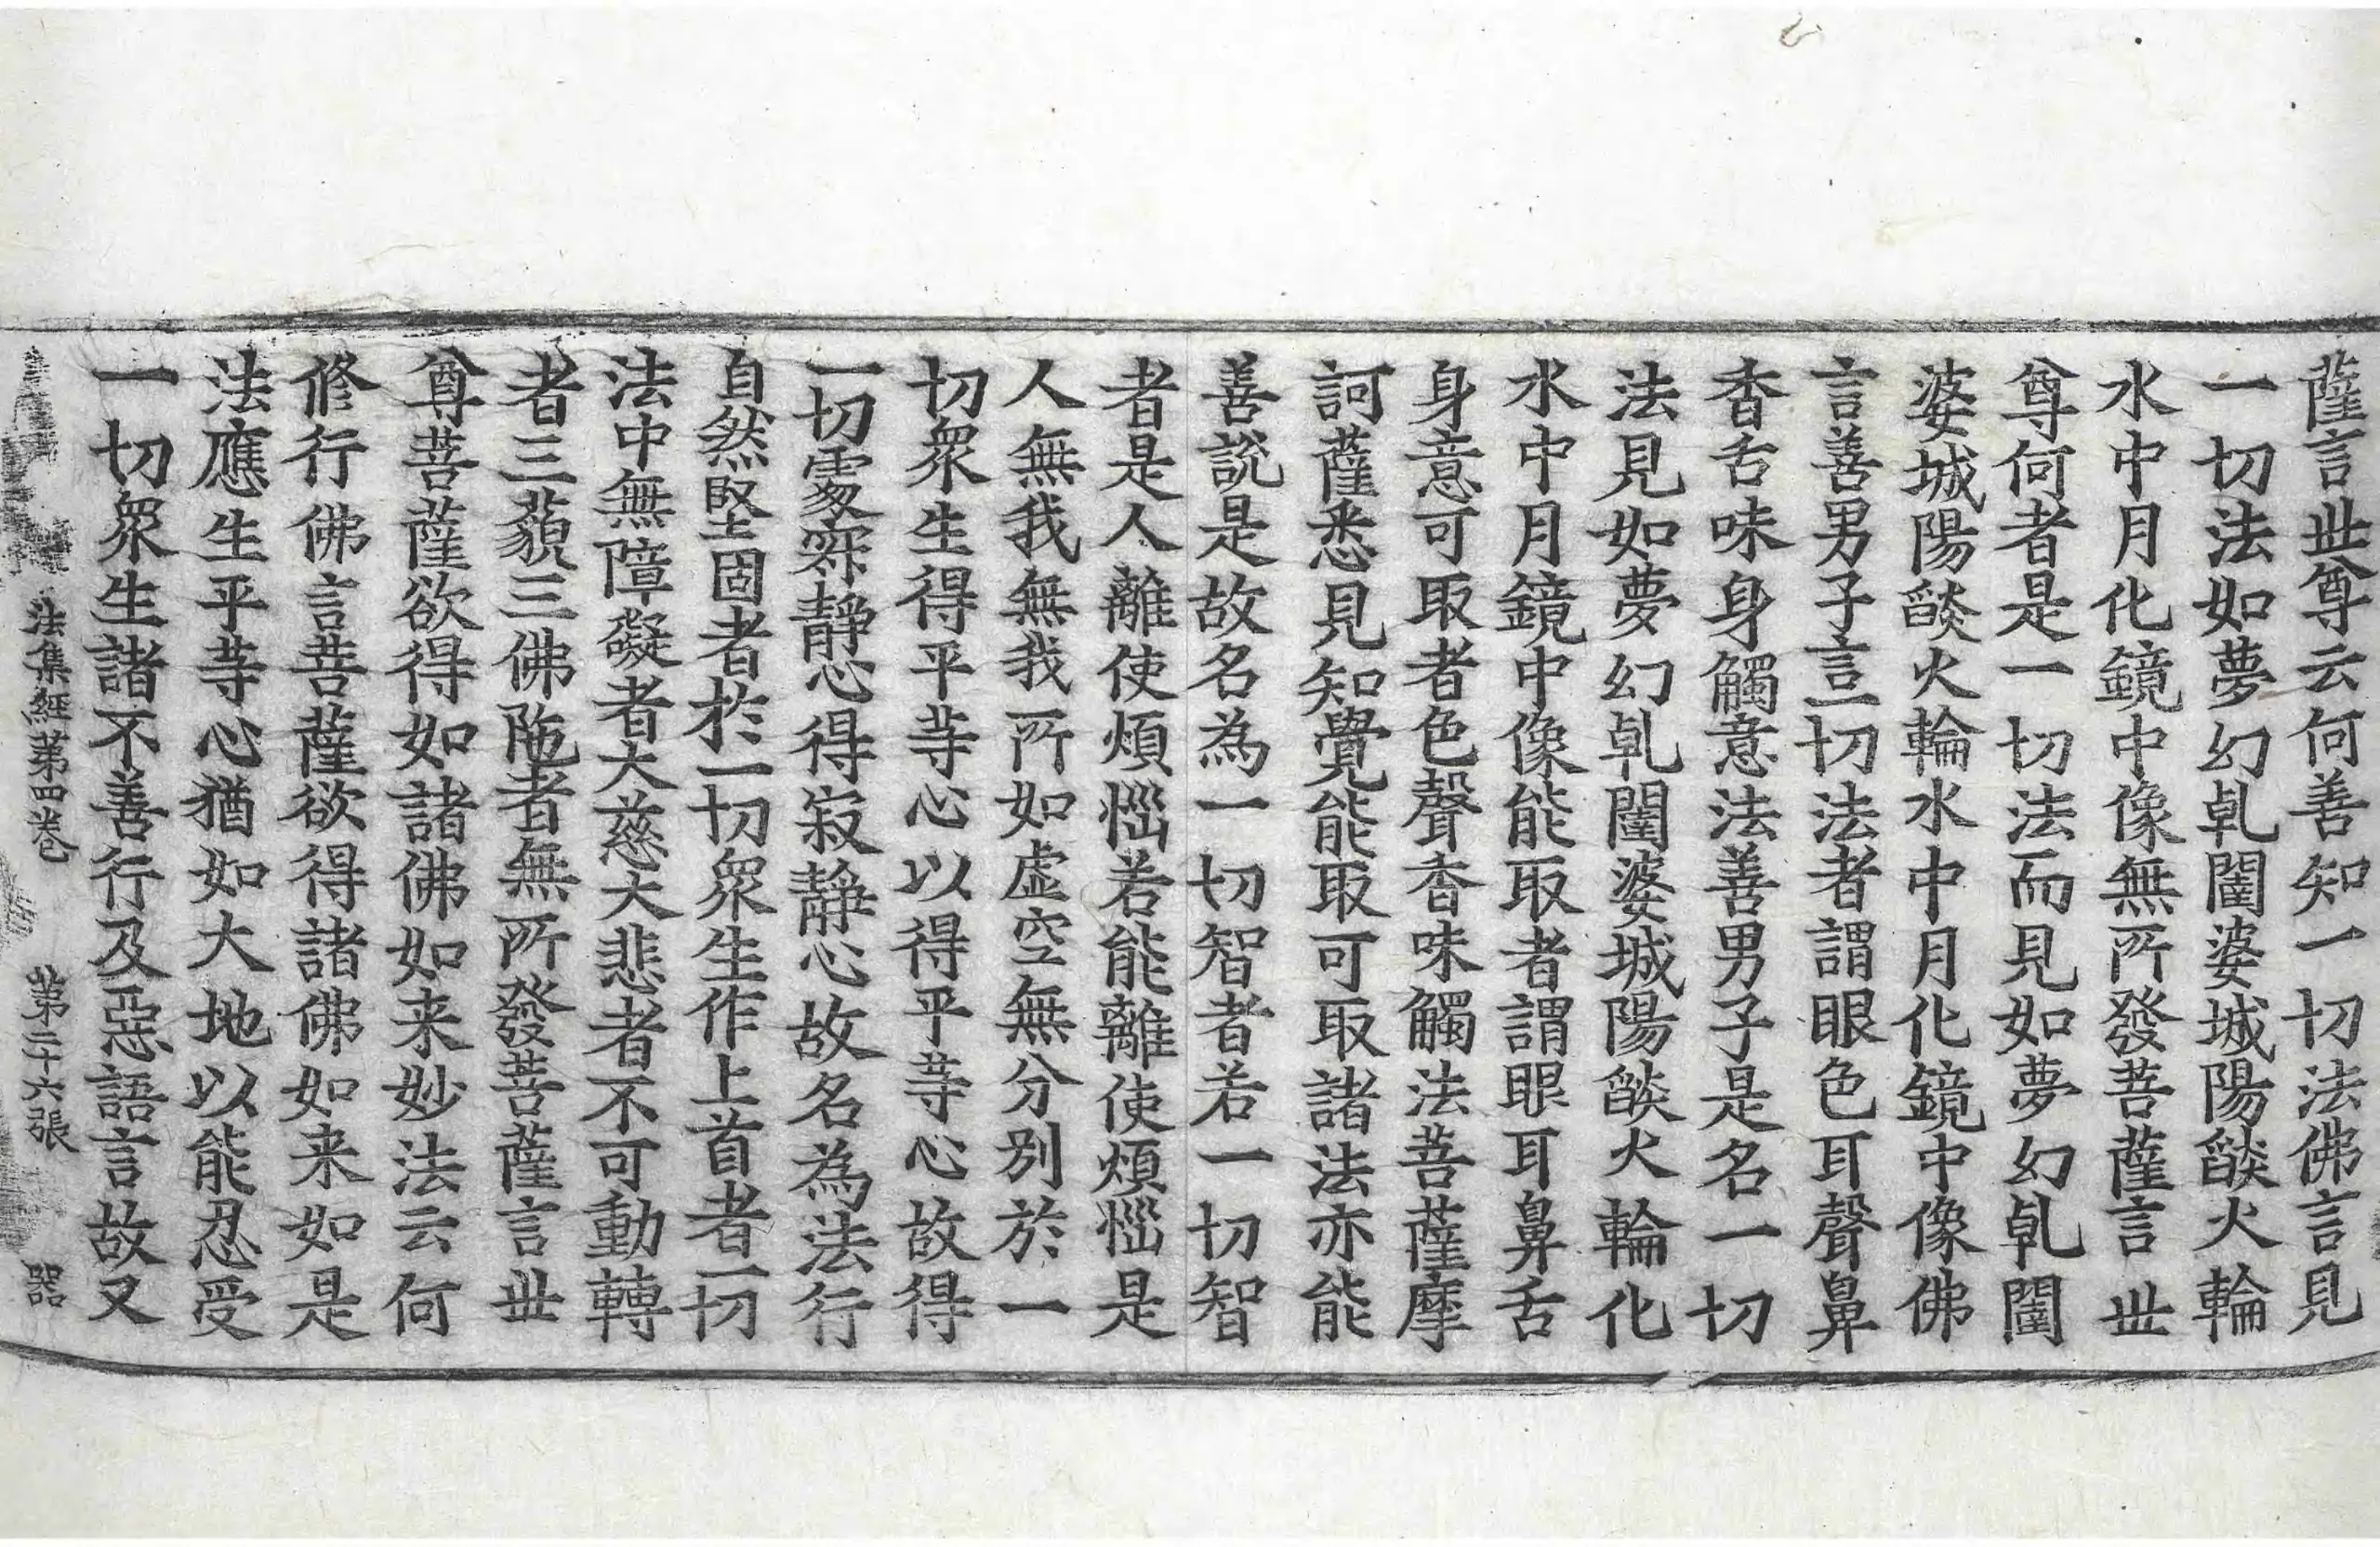 薩言世尊云何善知一切法佛言見
一切法如夢幻乹闥婆城陽燄火輪
水中月化鏡中像無所發菩薩言世
尊何者是一切法而見如夢幻乹闥
婆城陽燄火輪水中月化鏡中像佛
言善男子言一切法者謂眼色耳聲鼻
香舌味身觸意法善男子是名一切
法見如夢幻乹闥婆城陽燄火輪化
水中月鏡中像能取者謂眼耳鼻舌
身意可取者色聲香味觸法菩薩摩
訶薩悉見知覺能取可取諸法亦能
善說是故名為一切智者若一切智
者是人離使煩惱若能離使煩惱是
人無我無我所如虛空無分別於一
切衆生得平等心以得平等心故得
一切處寂靜心得寂靜心故名為法行
自然堅固者於一切衆生作上首者一切
法中無障礙者大慈大悲者不可動轉
者三藐三佛陁者無所發菩薩言世
尊菩薩欲得如諸佛如来妙法云何
修行佛言菩薩欲得諸佛如来如是
法應生平等心猶如大地以能忍受
一切衆生諸不善行及惡語言故又
法集經第四卷 第二十六張 器